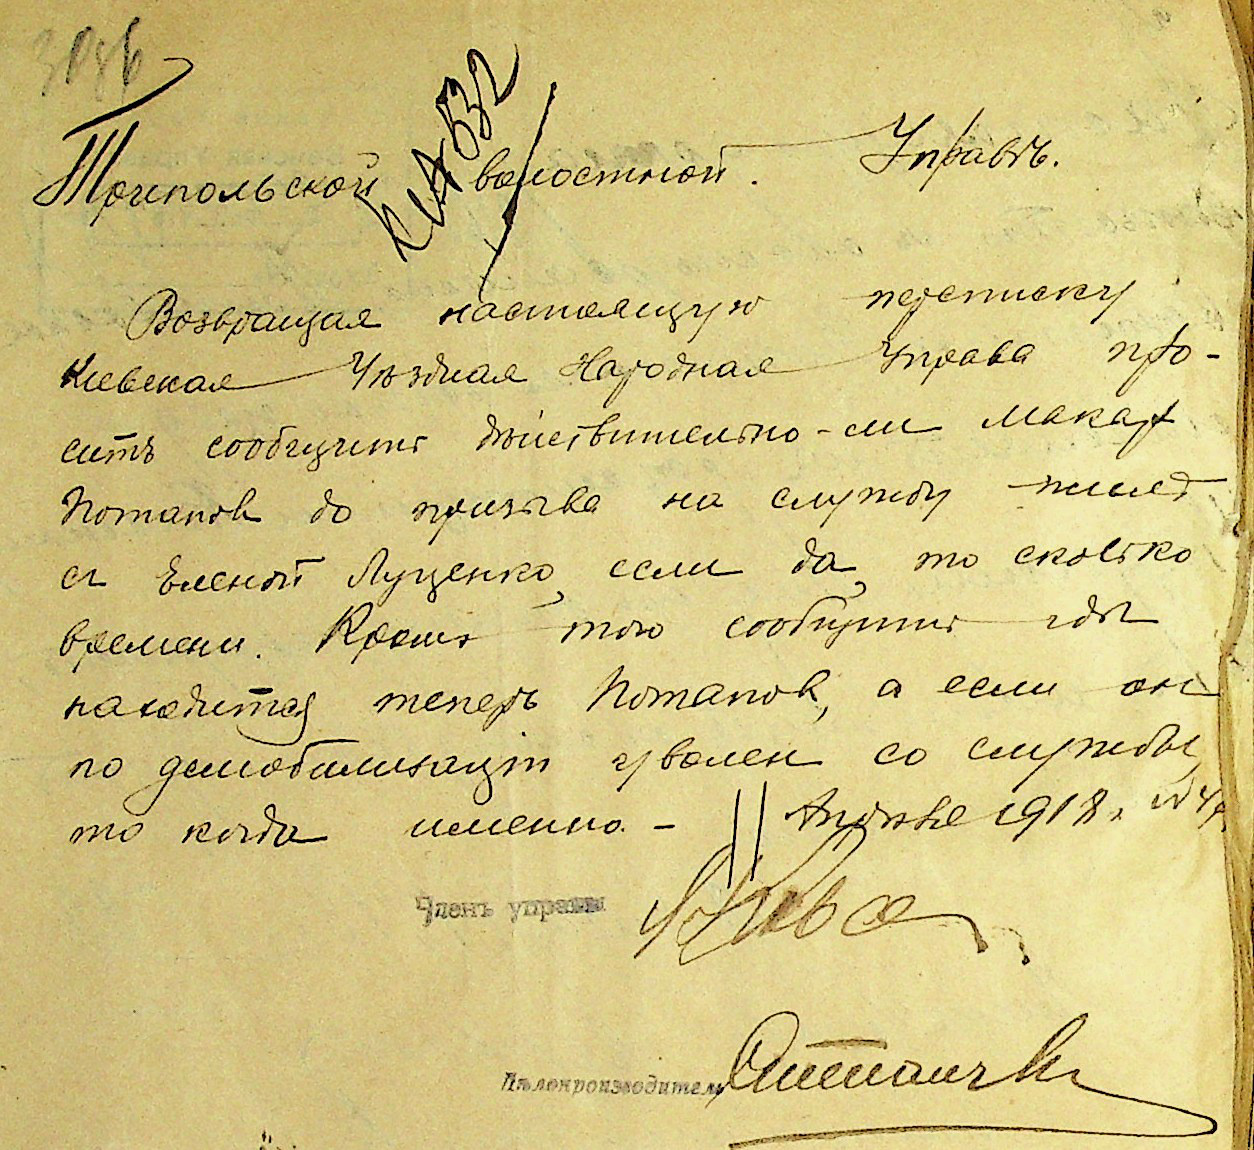 Трипольской волостной Управѣ.
Возвращая настоящую переписку
Кіевская Уѣздная Народная Управа про-
ситъ сообщить дѣйствительно-ли Макар
Потапов до призыва на службу жилъ
съ Еленой Луценко, если да, то сколько
времени. Кромѣ того сообщить гдѣ
находится теперь Потапов, а если он
по демобилизаціи уволен со службы,
то когда именно. — Апрѣля 1918 г.
Членъ управы
Дѣлопроизводитель